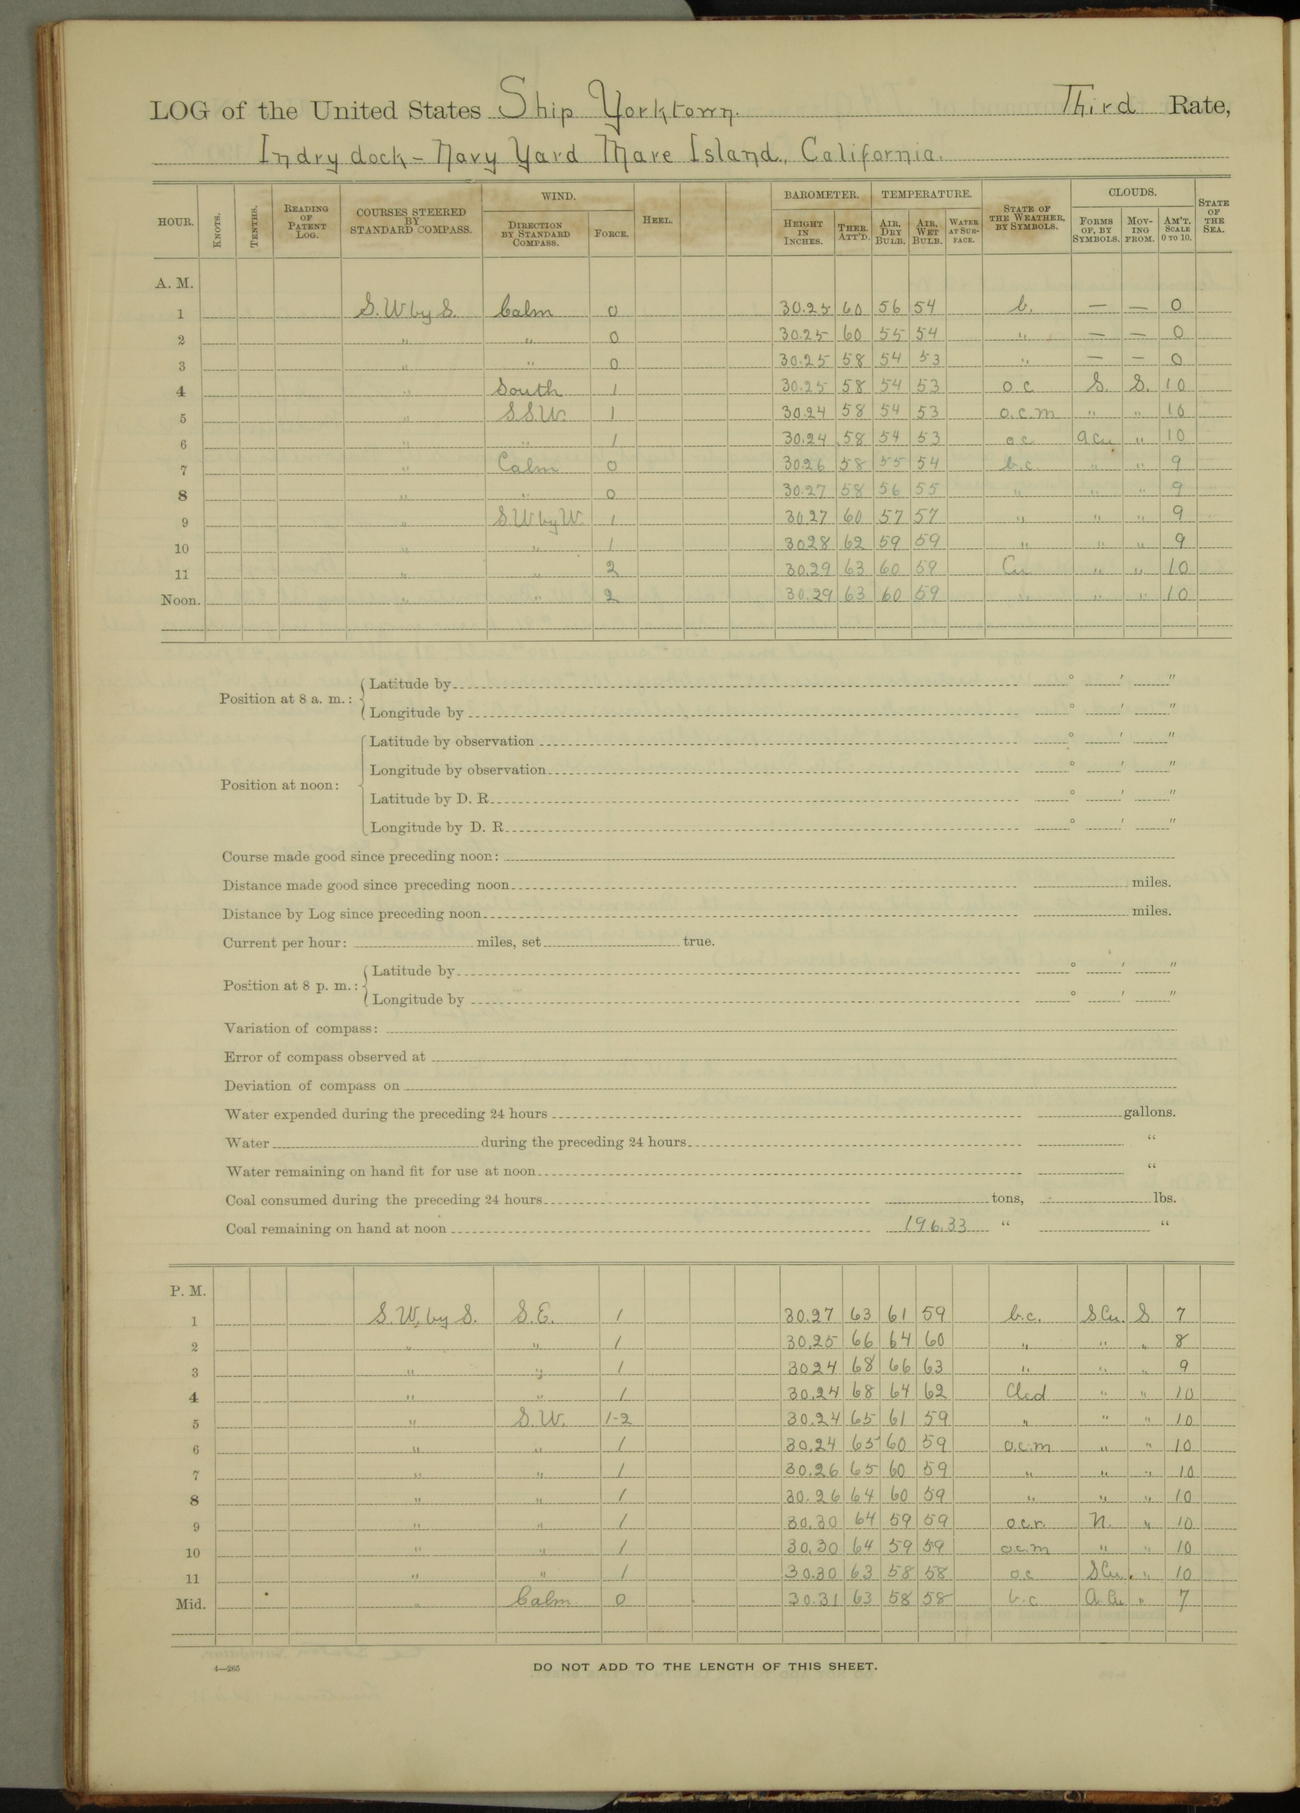 LOG of the United States Ship Yorktown. Third Rate,
In dry dock - Navy Yard Mare Island, California.
HOUR. KNOTS. TENTHS. READING OF PATENT LOG. COURSES STEERED BY STANDARD COMPASS. WIND. DIRECTION BY STANDARD COMPASS. FORCE. HEEL. BAROMETER. HEIGHT IN INCHES. THER. ATT'D. TEMPERATURE. AIR, DRY BULB. AIR, WET BULB. WATER AT SURFACE. STATE OF THE WEATHER, BY SYMBOLS. CLOUDS. FORMS OF, BY SYMBOLS. MOVING FROM. AM'T. SCALE 0 TO 10. STATE OF THE SEA.
A. M.
1 S. W by S. Calm 0 30.25 60 56 54 b. — — 0
2 " " 0 30.25 60 55 54 " — — 0
3 " " 0 30.25 58 54 53 " — — 0
4 " South 1 30.25 58 54 53 o c S. S. 10
5 " S.S.W. 1 30.24 58 54 53 o.c.m " " 10
6 " " 1 30.24 58 54 53 o c a cu " 10
7 " Calm 0 30.26 58 55 54 b.c. " " 9
8 " " 0 30.27 58 56 55 " " " 9
9 " S W by W. 1 30.27 60 57 57 " " " 9
10 " " 1 30.28 62 59 59 " " " 9
11 " " 2 30.29 63 60 59 Cu " " 10
Noon. " " 2 30.29 63 60 59 " " " 10
Position at 8 a. m.: Latitude by ° ' "
Longitude by ° ' "
Position at noon: Latitude by observation ° ' "
Longitude by observation ° ' "
Latitude by D. R. ° ' "
Longitude by D. R. ° ' "
Course made good since preceding noon:
Distance made good since preceding noon miles.
Distance by Log since preceding noon miles.
Current per hour: miles, set true.
Position at 8 p. m.: Latitude by ° ' "
Longitude by ° ' "
Variation of compass:
Error of compass observed at
Deviation of compass on
Water expended during the preceding 24 hours gallons.
Water during the preceding 24 hours "
Water remaining on hand fit for use at noon "
Coal consumed during the preceding 24 hours tons, lbs.
Coal remaining on hand at noon 196.33 " "
P. M.
1 S. W. by S. S. E. 1 30.27 63 61 59 b.c. S Cu. S 7
2 " " 1 30.25 66 64 60 " " " 8
3 " " 1 30.24 68 66 63 " " " 9
4 " " 1 30.24 68 64 62 Cld " " 10
5 " S. W. 1-2 30.24 65 61 59 " " " 10
6 " " 1 30.24 65 60 59 o.c.m " " 10
7 " " 1 30.26 65 60 59 " " " 10
8 " " 1 30.26 64 60 59 " " " 10
9 " " 1 30.30 64 59 59 o.c.r. N. " 10
10 " " 1 30.30 64 59 59 o.c.m " " 10
11 " " 1 30.30 63 58 58 o c S Cu. " 10
Mid. " Calm 0 30.31 63 58 58 b.c A. Cu " 7
4—265
DO NOT ADD TO THE LENGTH OF THIS SHEET.